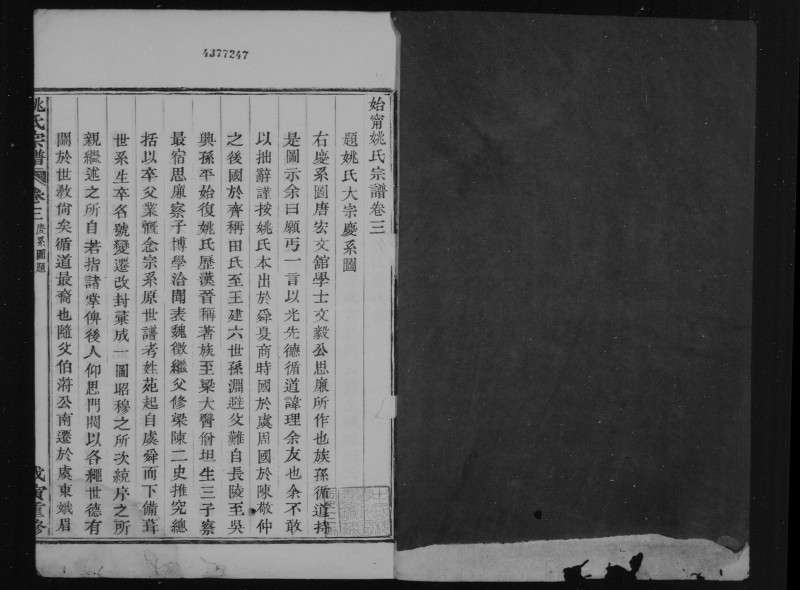 4J77247
始甯姚氏宗譜卷三
題姚氏大宗慶系圖
右慶系圖唐宏文舘學士文毅公思廉所作也族孫循道持
是圖示余曰願丐一言以光先德循道諱理余友也余不敢
以拙辭謹按姚氏本出於舜夏商時國於虞周國於陳敬仲
之後國於齊稱田氏至王建六世孫淵避汶難自長陵至吳
興孫平始復姚氏歷漢晉稱著族至梁大醫僧坦生三子察
最宿思廉察子博學洽聞表魏徵繼父修梁陳二史推究總
括以卒父業慨念宗系原世譜考姓苑起自虞舜而下備葺
世系生卒各號變遷改封彙成一圖昭穆之所次統序之所
親繼述之所自若指諸掌俾後人仰思門閥以各繩世德有
關於世教尙矣循道最裔也隨父伯蔣公南遷於虞東娥眉
姚氏宗譜 卷三 慶系圖題
戊寅重修